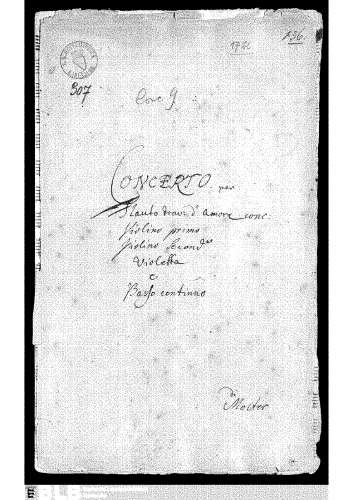 136.
307
Conc 9
CONCERTO per
Flauto trav: d'Amore conc:
Violino primo
Violino Secondo
Violetta
e
Basso continuo
di
Molter
BLB